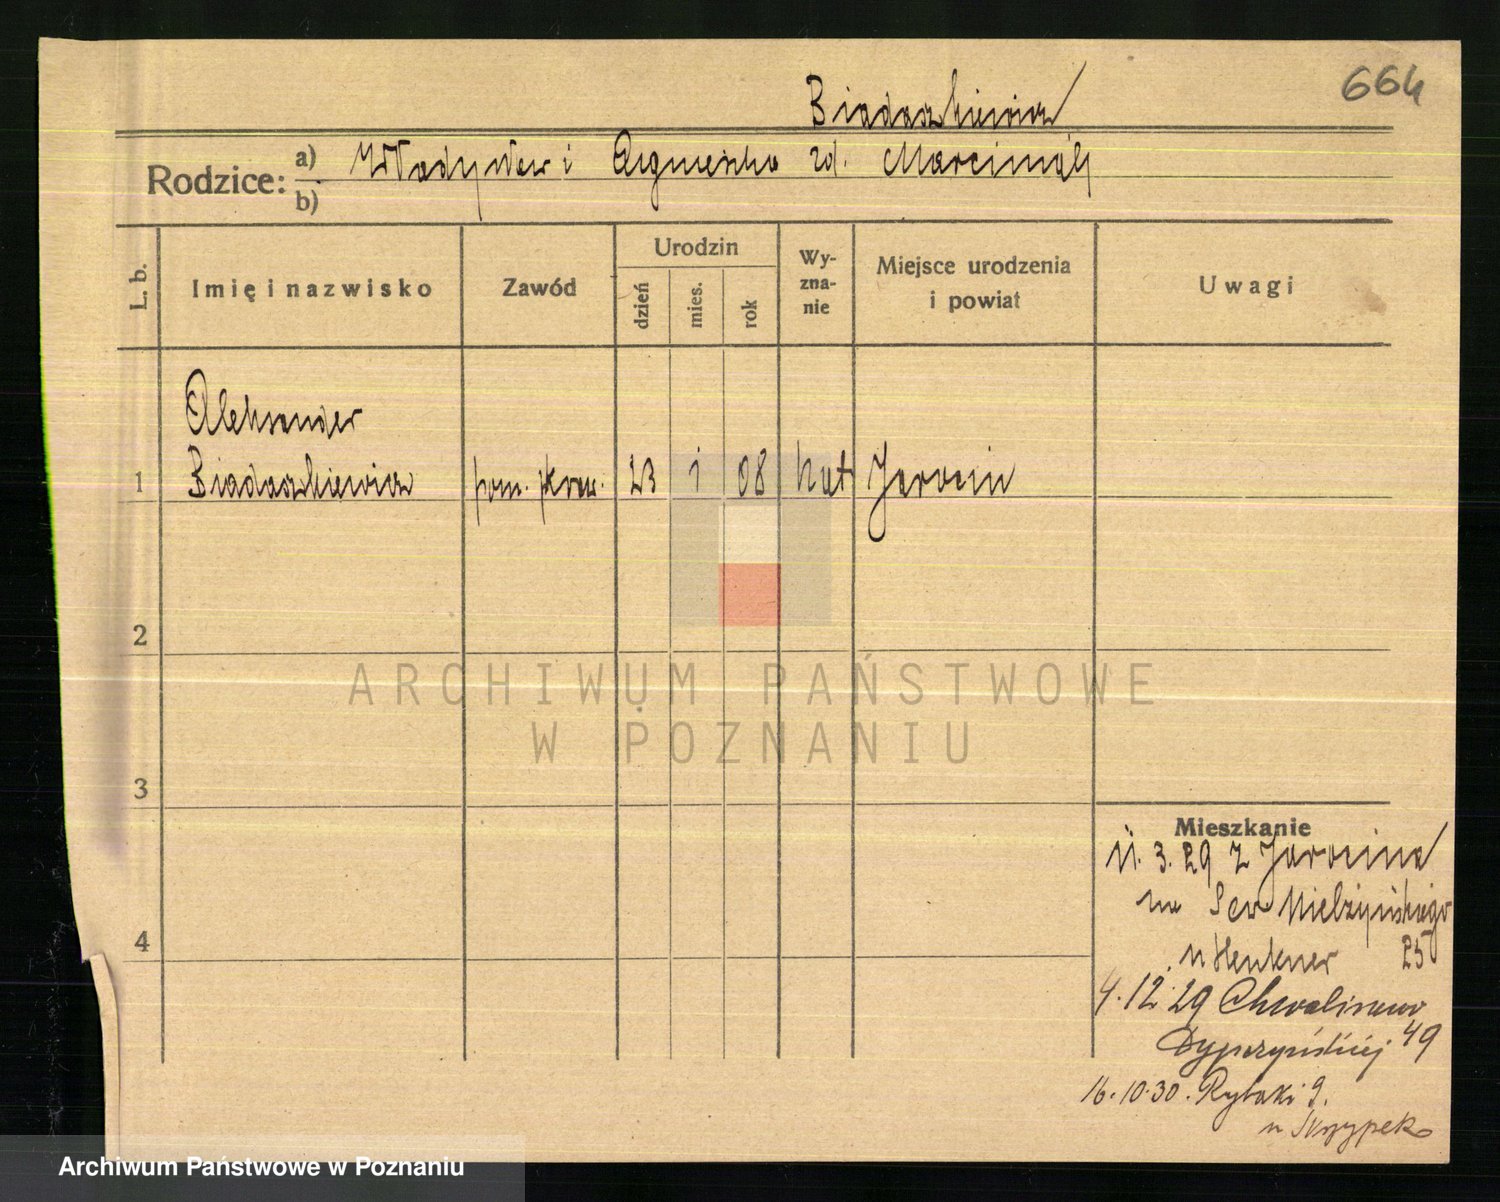 664
Biadaszkiewicz
Rodzice: a) Władysław i Agnieszka zd. Marciniak
b)
L. b. Imię i nazwisko Zawód Urodzin dzień mies. rok Wyznanie Miejsce urodzenia i powiat Uwagi
Aleksander
1 Biadaszkiewicz pom. kraw. 23 1 08 kat Jarocin
2
3
4
Mieszkanie
11. 3. 29 z Jarocina
na Sew Mielżyńskiego
u Henkner 25
4. 12 29 Chwaliszewo
49
16. 10. 30. Rybaki 9.
u Skrzypek
ARCHIWUM PAŃSTWOWE
W POZNANIU
Archiwum Państwowe w Poznaniu